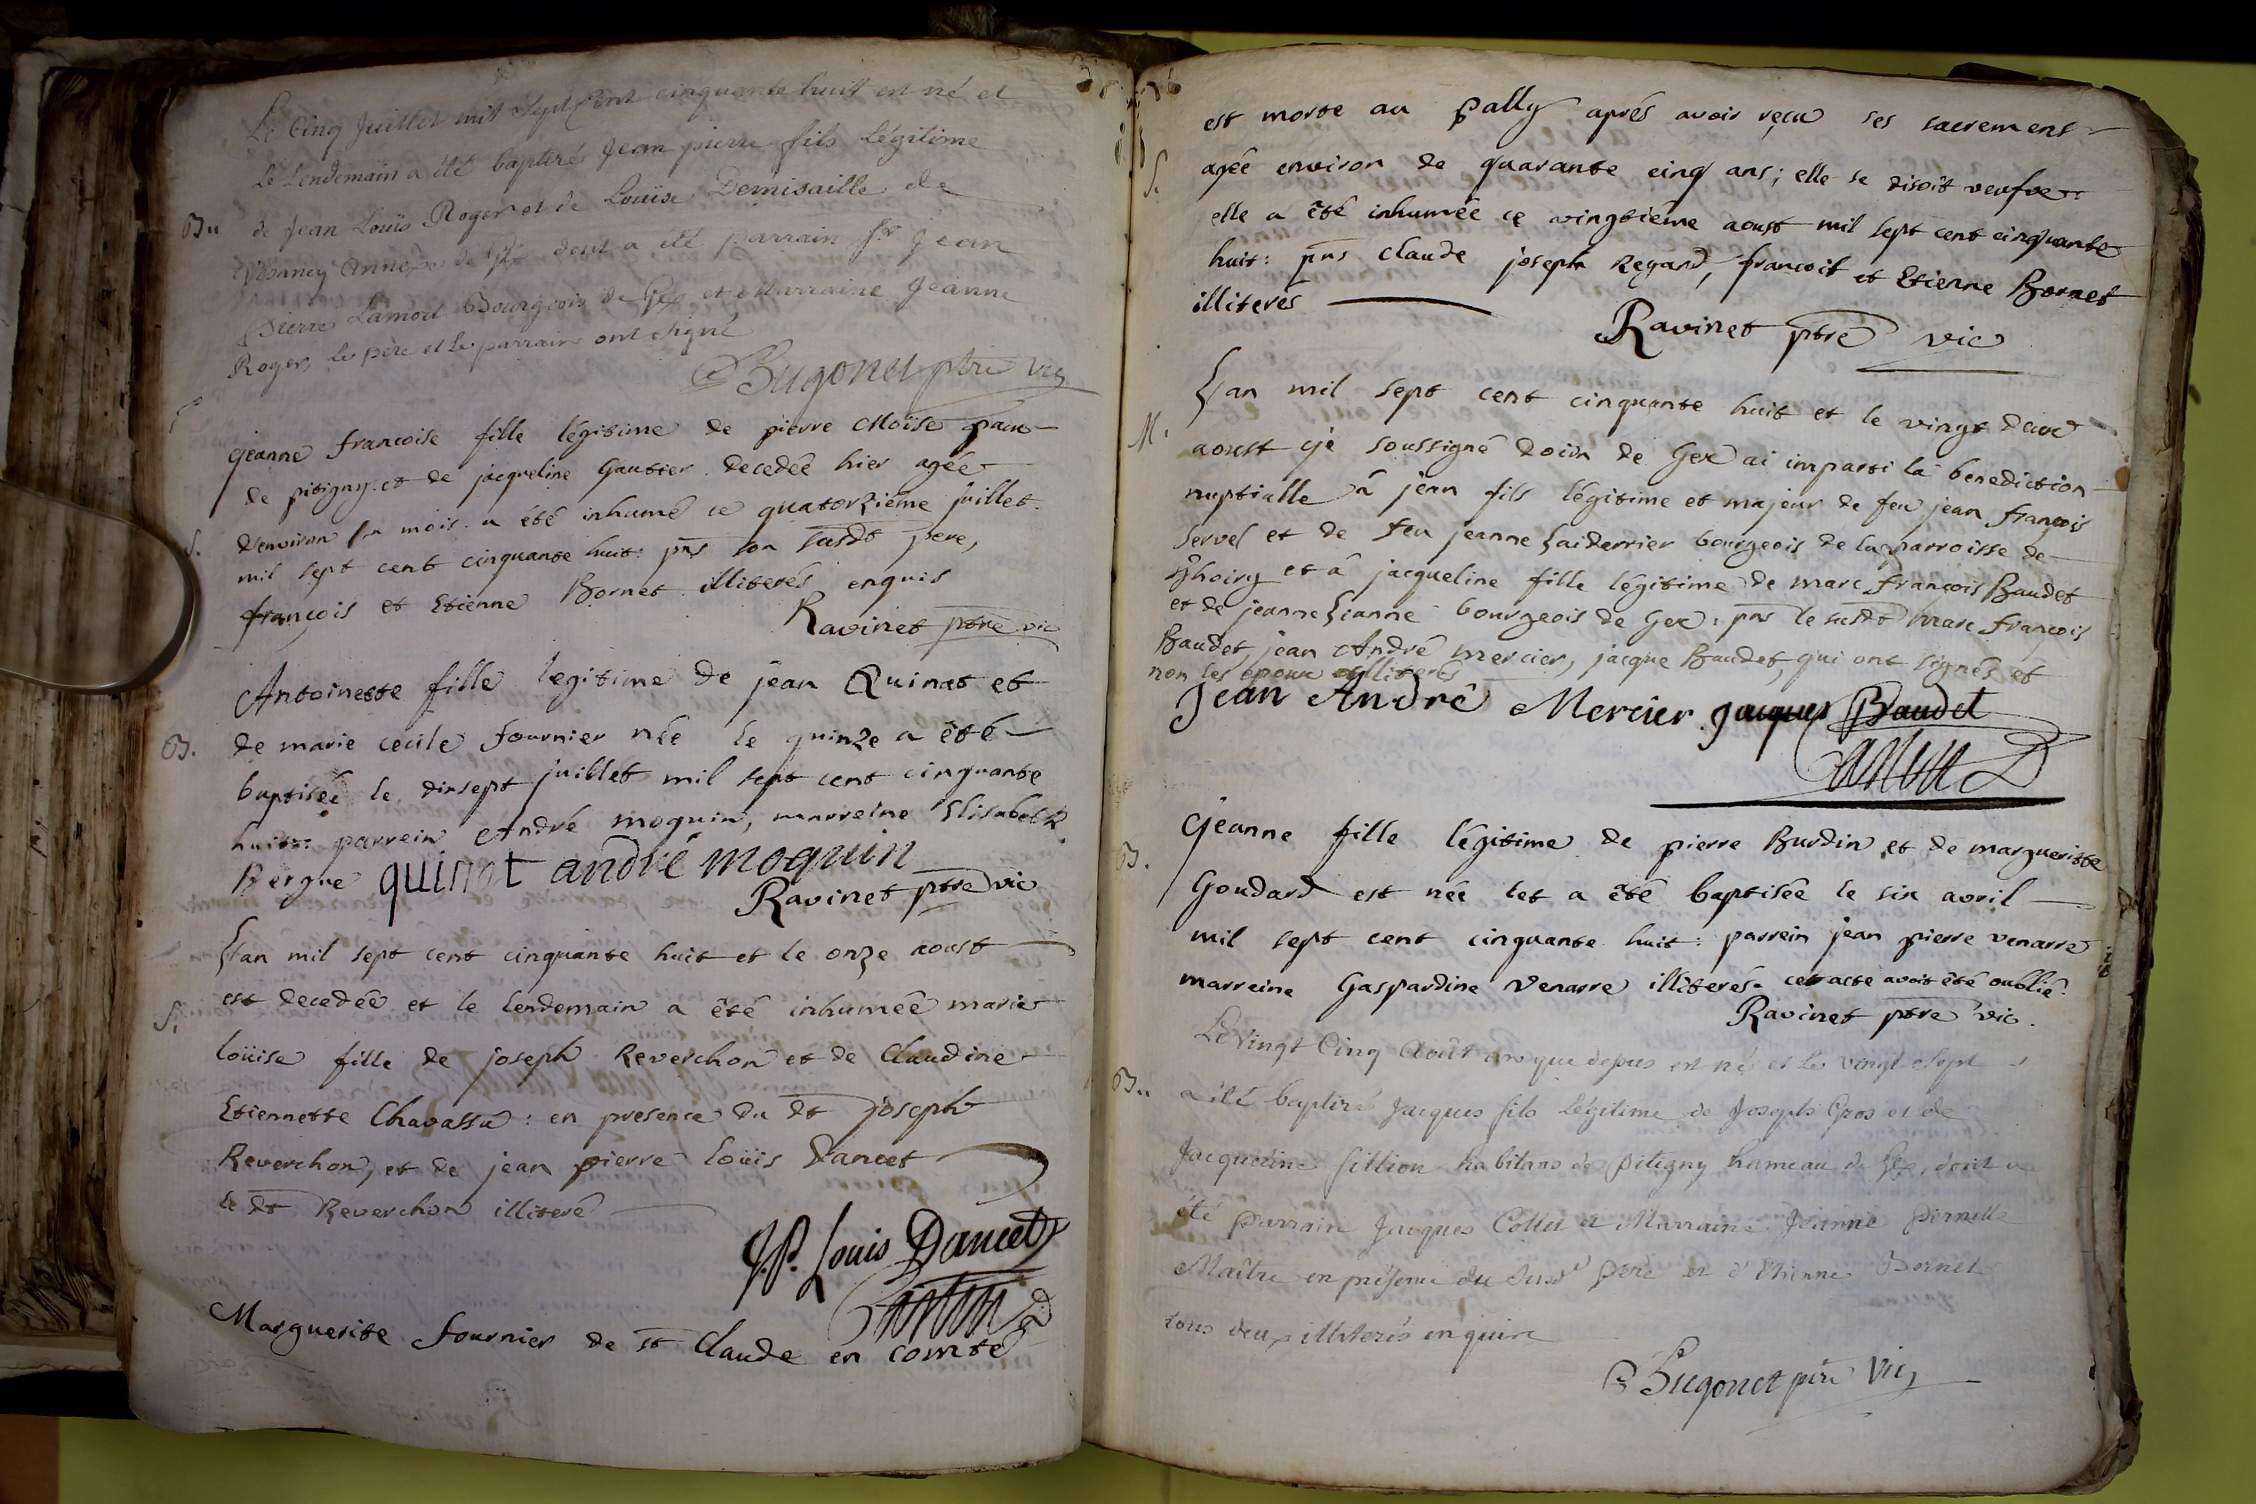 Le Cinq Juillet mil Sept Cent cinquante huit est né et
le lendemain a été baptisé Jean pierre fils légitime
B.. de Jean Louis Roger et de Louise Demisaille de
annexe de Gex dont a été parrain Sr Jean
Pierre Lamort Bourgeois de Gex et Marraine Jeanne
Roger, le père et le parrain ont signé
Bugonet ptre vic
jeanne francoise fille légitime de pierre Moïse
de pitigny et de jacqueline Gautier decedée hier agée
S. d'environ un mois a été inhumé ce quatorzième juillet
mil sept cent cinquante huit: pns son susdt pere,
françois et Etienne Bornet illiterés enquis
Ravinet ptre vic
Antoinette fille legitime de jean Quinat et
B. de marie cecile fournier née le quinze a été
baptisée le dixsept juillet mil sept cent cinquante
huit: parrein André moquin, marreine Elisabeth
Bergue quinat andré moquin
Ravinet ptre vic
L'an mil sept cent cinquante huit et le onze aoust
S. est decedée et le lendemain a été inhumée marie
loüise fille de joseph Reverchon et de Claudine
Etiennette Chavassu: en presence du dt joseph
Reverchon, et de jean pierre loüis Dancet
le dt Reverchon illiteré
J.P. Louis Dancet
Marguerite fournier de st Claude en comté
est morte au pally aprés avoir reçu ses sacremens
S. agée environ de quarante cinq ans; elle se disoit veufve
elle a été inhumée ce vingtiéme aoust mil sept cent cinquante
huit: pns claude joseph Regard, francois et Etienne Bornet
illiterés
Ravinet ptre vic
L'an mil sept cent cinquante huit et le vingt deux
M. aoust je soussigné doien de Gex ai imparti la benediction
nuptialle à jean fils légitime et majeur de feu jean françois
Servel et de feu jeanne Laiderrier bourgeois de la parroisse de
Thoiry et à jacqueline fille légitime de marc françois Baudet
et de jeanne Lianne bourgeois de Gex: pns le susdt marc françois
Baudet, jean André mercier, jacque Baudet, qui ont signés et
non les epoux illiterés
Jean André Mercier Jacques Baudet
jeanne fille légitime de pierre Burdin et de margueritte
B. Goudard est née et a été baptisée le six avril
mil sept cent cinquante huit: parrein jean pierre venarre
marreine Gaspardine Venarre illiterés. cet acte avoit été oublié.
Ravinet ptre vic.
Le Vingt Cinq Août an que dessus est né et le vingt sept
B.. a été baptisé Jacques fils légitime de Joseph Gros et de
Jacqueline fillion habitans de pitigny hameau de Gex, dont a
été parrain Jacques Collet et Marraine Jeanne pernette
Maître en présence du susdt père et d'Etienne Bornet
tous deux illiterés enquis
Bugonet ptre Vic